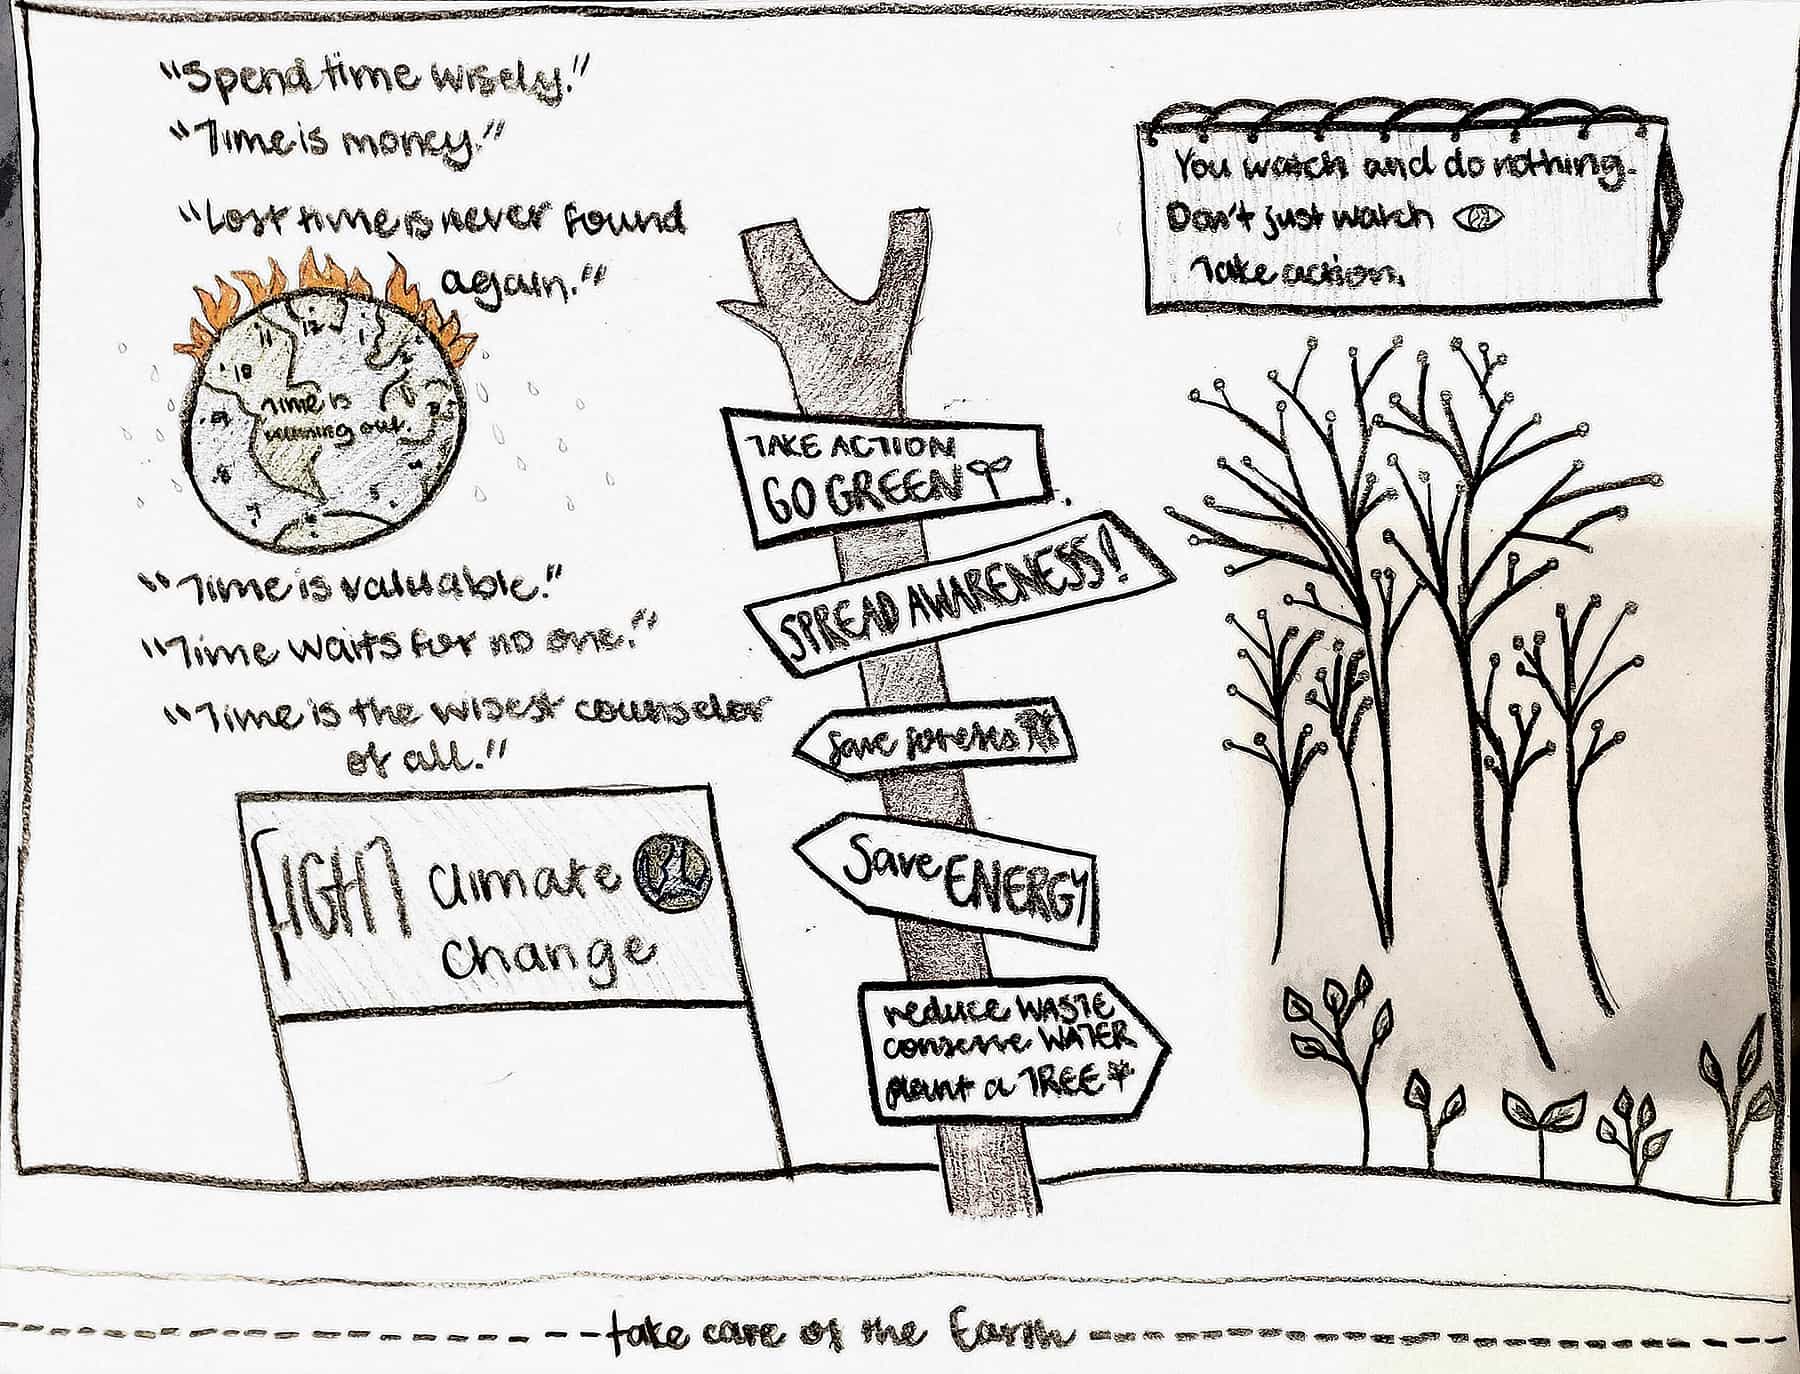 "Spend time wisely."
"Time is money."
"Lost time is never found
again."
11 12 1
10 2
Time is
running out.
9 3
8
7 6 5
"Time is valuable."
"Time waits for no one."
"Time is the wisest counselor
of all."
FIGHT climate
change
TAKE ACTION
GO GREEN
SPREAD AWARENESS!
Save forests
Save ENERGY
reduce WASTE
conserve WATER
plant a TREE
You watch and do nothing.
Don't just watch
Take action.
take care of the Earth